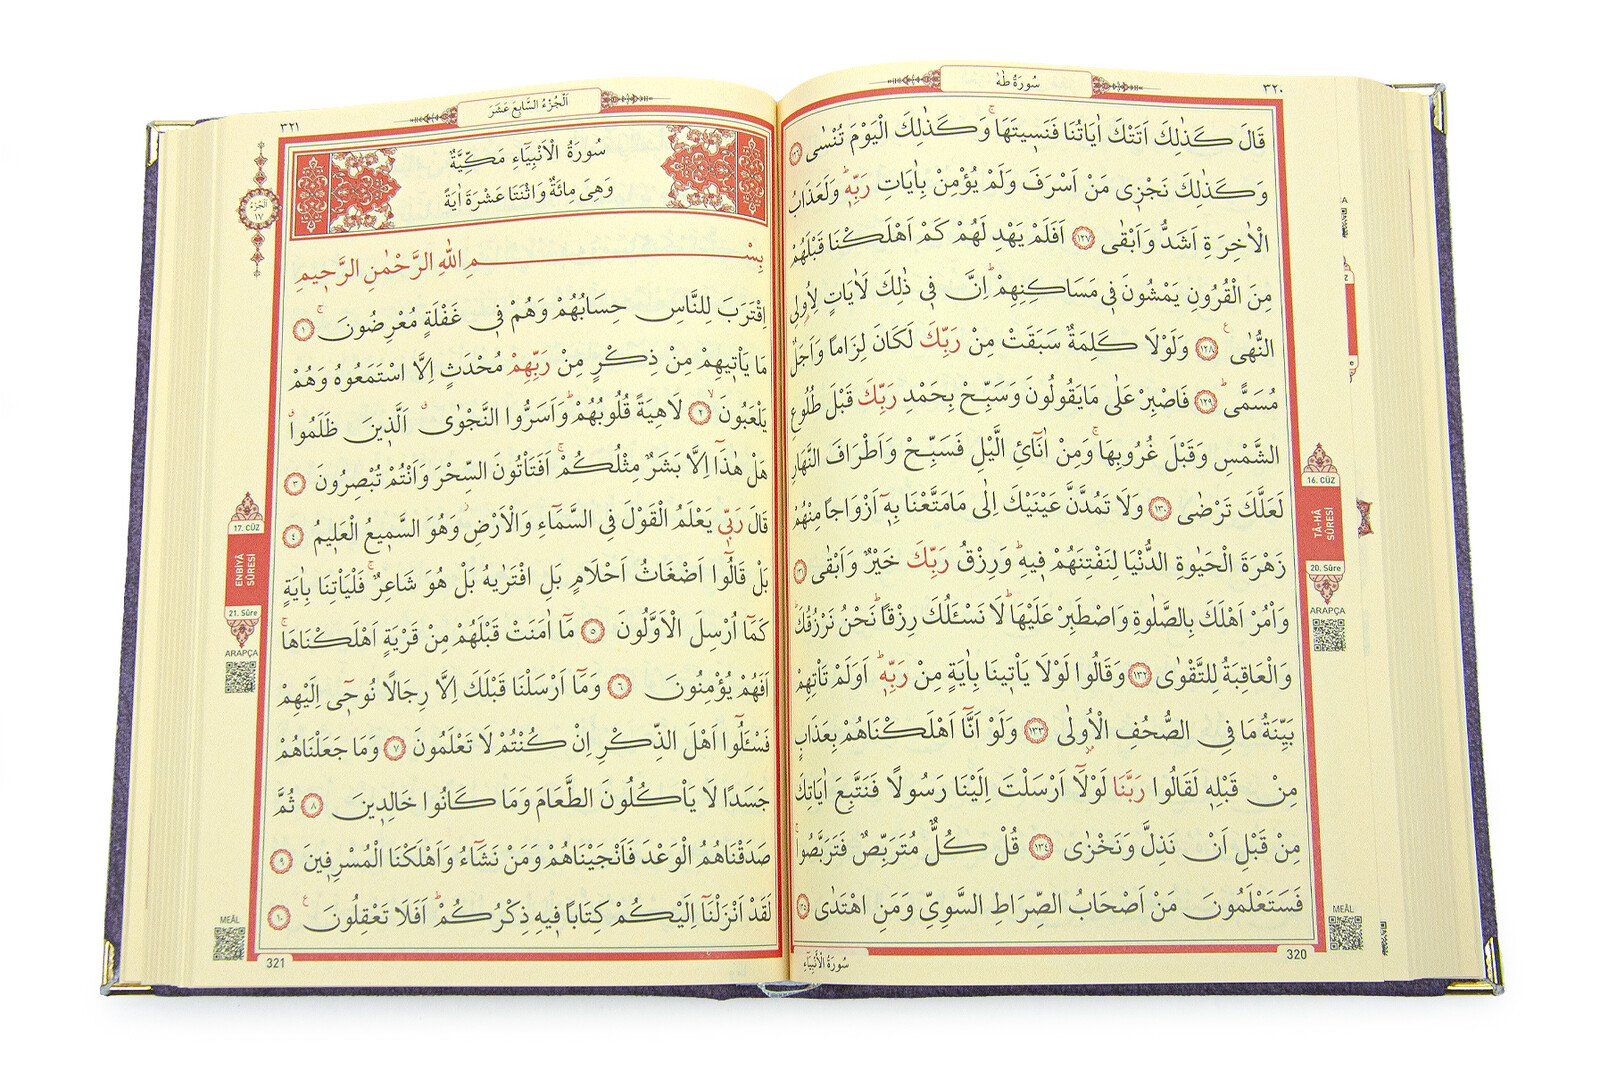 سُورَةُ طٰهٰ
٣٢٠
قَالَ كَذٰلِكَ اَتَتْكَ اٰيَاتُنَا فَنَسٖيتَهَاۚ وَكَذٰلِكَ الْيَوْمَ تُنْسٰى ﴿١٢٦﴾
وَكَذٰلِكَ نَجْزٖى مَنْ اَسْرَفَ وَلَمْ يُؤْمِنْ بِاٰيَاتِ رَبِّهٖؕ وَلَعَذَابُ
الْاٰخِرَةِ اَشَدُّ وَاَبْقٰى ﴿١٢٧﴾ اَفَلَمْ يَهْدِ لَهُمْ كَمْ اَهْلَكْنَا قَبْلَهُمْ
مِنَ الْقُرُونِ يَمْشُونَ فٖى مَسَاكِنِهِمْؕ اِنَّ فٖى ذٰلِكَ لَاٰيَاتٍ لِاُولِى
النُّهٰىࣖ ﴿١٢٨﴾ وَلَوْلَا كَلِمَةٌ سَبَقَتْ مِنْ رَبِّكَ لَكَانَ لِزَامًا وَاَجَلٌ
مُسَمًّىؕ ﴿١٢٩﴾ فَاصْبِرْ عَلٰى مَا يَقُولُونَ وَسَبِّحْ بِحَمْدِ رَبِّكَ قَبْلَ طُلُوعِ
الشَّمْسِ وَقَبْلَ غُرُوبِهَاۚ وَمِنْ اٰنَآئِ الَّيْلِ فَسَبِّحْ وَاَطْرَافَ النَّهَارِ
لَعَلَّكَ تَرْضٰى ﴿١٣٠﴾ وَلَا تَمُدَّنَّ عَيْنَيْكَ اِلٰى مَا مَتَّعْنَا بِهٖٓ اَزْوَاجًا مِنْهُمْ
زَهْرَةَ الْحَيٰوةِ الدُّنْيَا لِنَفْتِنَهُمْ فٖيهِؕ وَرِزْقُ رَبِّكَ خَيْرٌ وَاَبْقٰى ﴿١٣١﴾
وَاْمُرْ اَهْلَكَ بِالصَّلٰوةِ وَاصْطَبِرْ عَلَيْهَاؕ لَا نَسْـَٔلُكَ رِزْقًاؕ نَحْنُ نَرْزُقُكَؕ
وَالْعَاقِبَةُ لِلتَّقْوٰى ﴿١٣٢﴾ وَقَالُوا لَوْلَا يَاْتٖينَا بِاٰيَةٍ مِنْ رَبِّهٖؕ اَوَلَمْ تَاْتِهِمْ
بَيِّنَةُ مَا فِى الصُّحُفِ الْاُولٰى ﴿١٣٣﴾ وَلَوْ اَنَّٓا اَهْلَكْنَاهُمْ بِعَذَابٍ
مِنْ قَبْلِهٖ لَقَالُوا رَبَّنَا لَوْلَٓا اَرْسَلْتَ اِلَيْنَا رَسُولًا فَنَتَّبِعَ اٰيَاتِكَ
مِنْ قَبْلِ اَنْ نَذِلَّ وَنَخْزٰى ﴿١٣٤﴾ قُلْ كُلٌّ مُتَرَبِّصٌ فَتَرَبَّصُواۚ
فَسَتَعْلَمُونَ مَنْ اَصْحَابُ الصِّرَاطِ السَّوِىِّ وَمَنِ اهْتَدٰى ﴿١٣٥﴾
320
سُورَةُ الْاَنْبِيَٓاءِ
16. CÜZ
TÂ-HÂ
SÛRESİ
20. Sûre
ARAPÇA
MEÂL
اَلْجُزْءُ السَّابِعَ عَشَرَ
٣٢١
سُورَةُ الْاَنْبِيَٓاءِ مَكِّيَّةٌ
وَهِىَ مِائَةٌ وَاثْنَتَا عَشْرَةَ اٰيَةً
بِسْمِ اللّٰهِ الرَّحْمٰنِ الرَّحٖيمِ
اِقْتَرَبَ لِلنَّاسِ حِسَابُهُمْ وَهُمْ فٖى غَفْلَةٍ مُعْرِضُونَۚ ﴿١﴾
مَا يَاْتٖيهِمْ مِنْ ذِكْرٍ مِنْ رَبِّهِمْ مُحْدَثٍ اِلَّا اسْتَمَعُوهُ وَهُمْ
يَلْعَبُونَۙ ﴿٢﴾ لَاهِيَةً قُلُوبُهُمْؕ وَاَسَرُّوا النَّجْوٰىۗ اَلَّذٖينَ ظَلَمُواۗ
هَلْ هٰذَٓا اِلَّا بَشَرٌ مِثْلُكُمْۚ اَفَتَاْتُونَ السِّحْرَ وَاَنْتُمْ تُبْصِرُونَ ﴿٣﴾
قَالَ رَبّٖى يَعْلَمُ الْقَوْلَ فِى السَّمَٓاءِ وَالْاَرْضِؗ وَهُوَ السَّمٖيعُ الْعَلٖيمُ ﴿٤﴾
بَلْ قَالُٓوا اَضْغَاثُ اَحْلَامٍ بَلِ افْتَرٰيهُ بَلْ هُوَ شَاعِرٌۚ فَلْيَاْتِنَا بِاٰيَةٍ
كَمَٓا اُرْسِلَ الْاَوَّلُونَ ﴿٥﴾ مَٓا اٰمَنَتْ قَبْلَهُمْ مِنْ قَرْيَةٍ اَهْلَكْنَاهَاۚ
اَفَهُمْ يُؤْمِنُونَ ﴿٦﴾ وَمَٓا اَرْسَلْنَا قَبْلَكَ اِلَّا رِجَالًا نُوحٖٓى اِلَيْهِمْ
فَسْـَٔلُٓوا اَهْلَ الذِّكْرِ اِنْ كُنْتُمْ لَا تَعْلَمُونَ ﴿٧﴾ وَمَا جَعَلْنَاهُمْ
جَسَدًا لَا يَاْكُلُونَ الطَّعَامَ وَمَا كَانُوا خَالِدٖينَ ﴿٨﴾ ثُمَّ
صَدَقْنَاهُمُ الْوَعْدَ فَاَنْجَيْنَاهُمْ وَمَنْ نَشَٓاءُ وَاَهْلَكْنَا الْمُسْرِفٖينَ ﴿٩﴾
لَقَدْ اَنْزَلْنَٓا اِلَيْكُمْ كِتَابًا فٖيهِ ذِكْرُكُمْؕ اَفَلَا تَعْقِلُونَࣖ ﴿١٠﴾
321
اَلْجُزْءُ
١٧
17. CÜZ
ENBİYÂ
SÛRESİ
21. Sûre
ARAPÇA
MEÂL